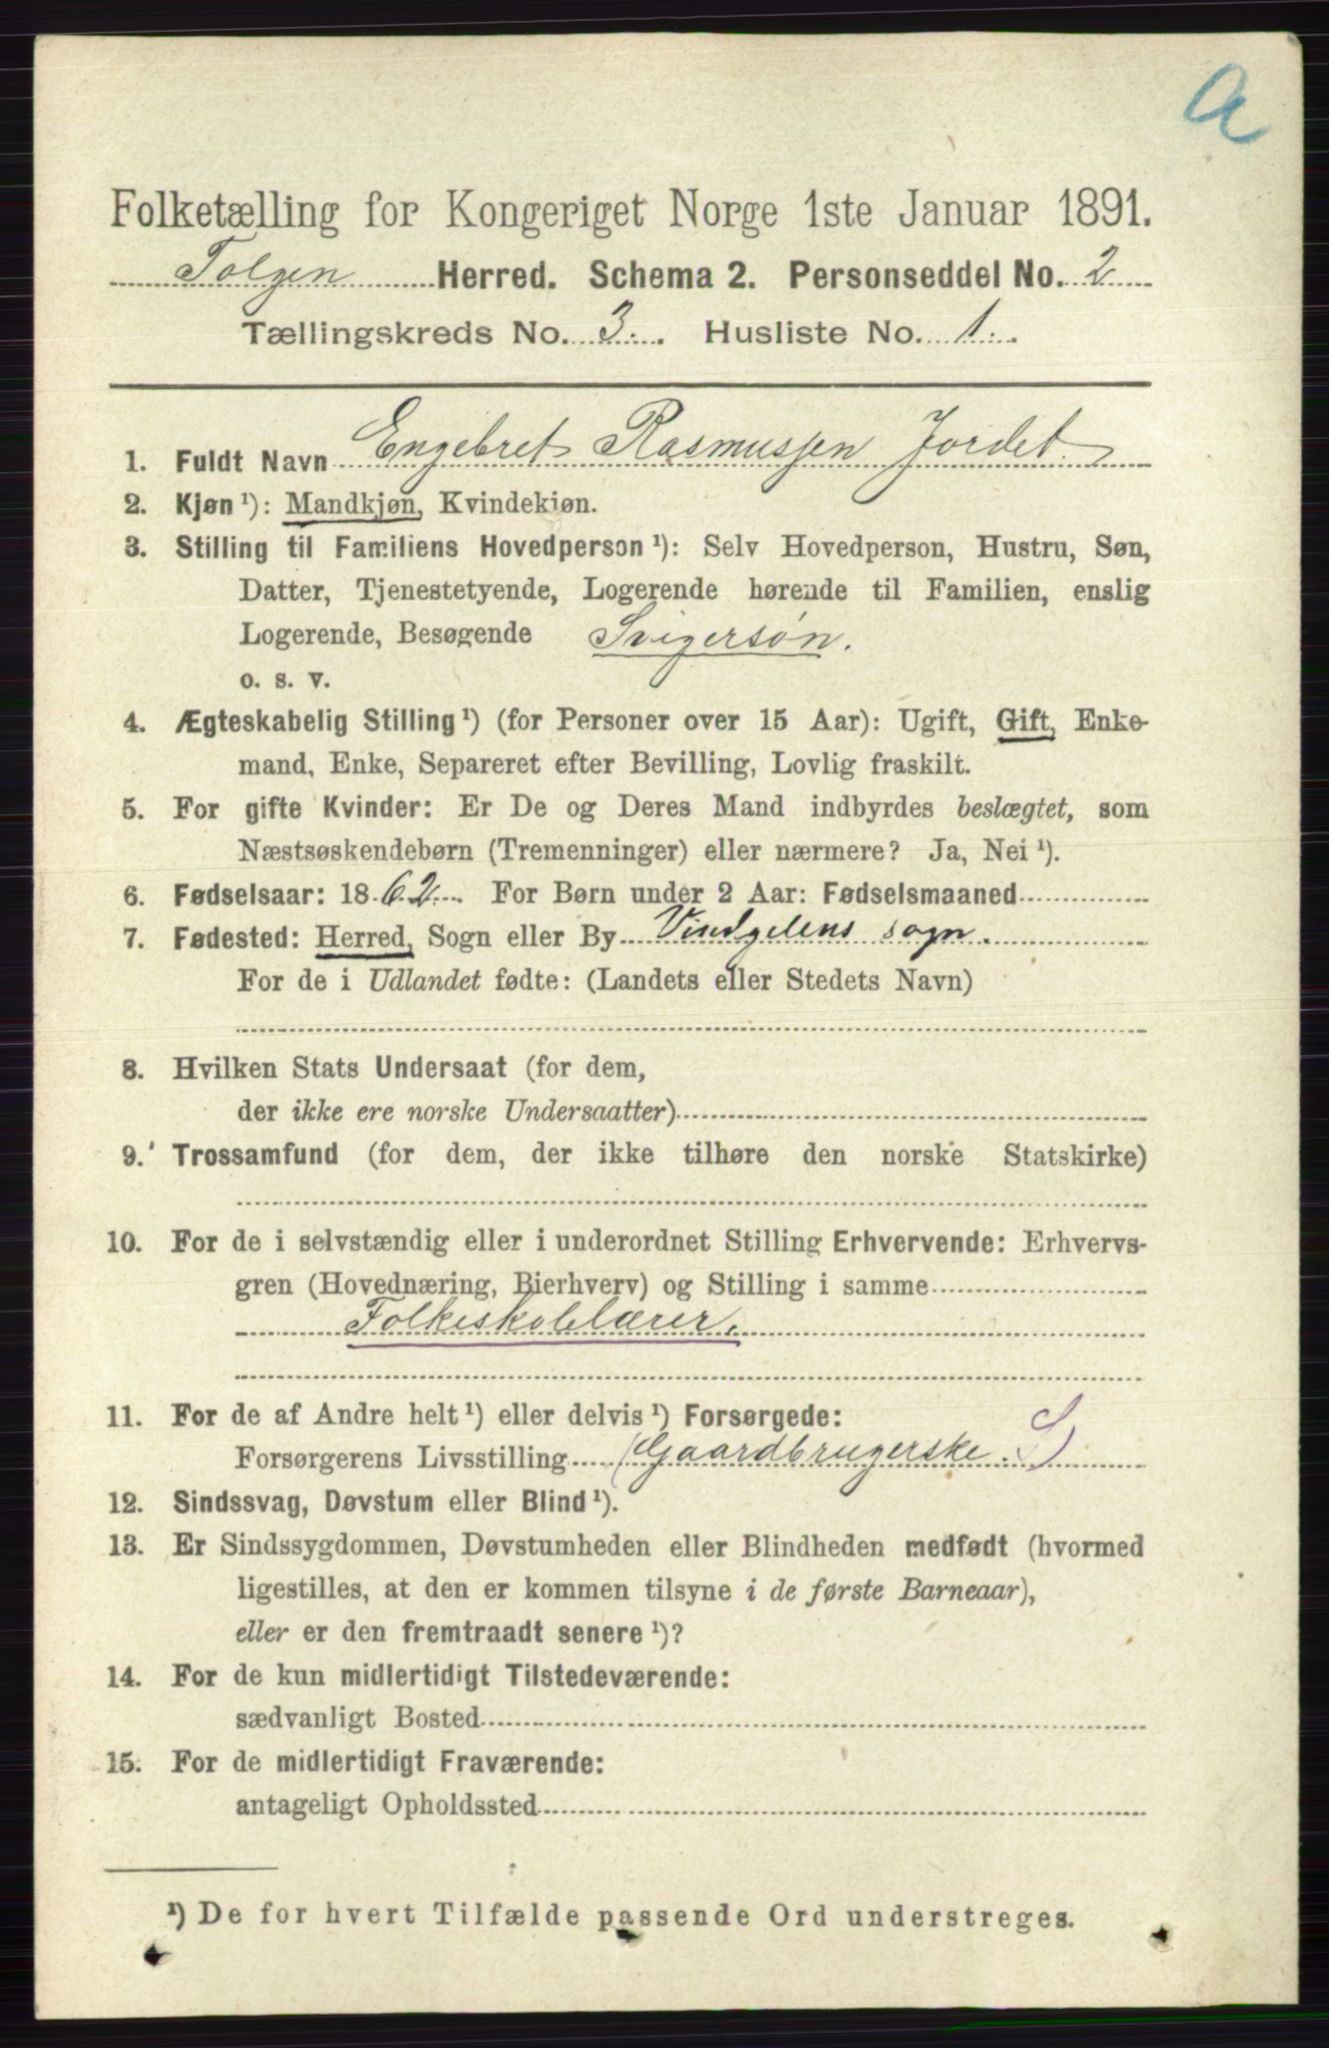 a
Folketælling for Kongeriget Norge 1ste Januar 1891.
Tolgen Herred. Schema 2. Personseddel No. 2
Tællingskreds No. 3. Husliste No. 1.
1. Fuldt Navn Engebret Rasmussen Jordet
2. Kjøn ¹): Mandkjøn, Kvindekjøn.
3. Stilling til Familiens Hovedperson ¹): Selv Hovedperson, Hustru, Søn,
Datter, Tjenestetyende, Logerende hørende til Familien, enslig
Logerende, Besøgende Svigersøn.
o. s. v.
4. Ægteskabelig Stilling ¹) (for Personer over 15 Aar): Ugift, Gift, Enke-
mand, Enke, Separeret efter Bevilling, Lovlig fraskilt.
5. For gifte Kvinder: Er De og Deres Mand indbyrdes beslægtet, som
Næstsøskendebørn (Tremenninger) eller nærmere? Ja, Nei ¹).
6. Fødselsaar: 1862. For Børn under 2 Aar: Fødselsmaaned
7. Fødested: Herred, Sogn eller By Vindgelens sogn.
For de i Udlandet fødte: (Landets eller Stedets Navn)
8. Hvilken Stats Undersaat (for dem,
der ikke ere norske Undersaatter)
9. Trossamfund (for dem, der ikke tilhøre den norske Statskirke)
10. For de i selvstændig eller i underordnet Stilling Erhvervende: Erhvervs-
gren (Hovednæring, Bierhverv) og Stilling i samme
Folkeskolelærer.
11. For de af Andre helt ¹) eller delvis ¹) Forsørgede:
Forsørgerens Livsstilling (Gaardbrugerske. S)
12. Sindssvag, Døvstum eller Blind ¹).
13. Er Sindssygdommen, Døvstumheden eller Blindheden medfødt (hvormed
ligestilles, at den er kommen tilsyne i de første Barneaar),
eller er den fremtraadt senere ¹)?
14. For de kun midlertidigt Tilstedeværende:
sædvanligt Bosted
15. For de midlertidigt Fraværende:
antageligt Opholdssted
¹) De for hvert Tilfælde passende Ord understreges.